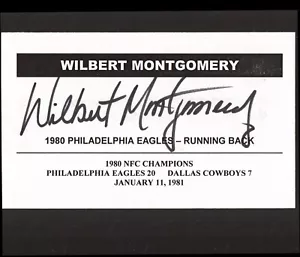 WILBERT MONTGOMERY
Wilbert Montgomery
1980 PHILADELPHIA EAGLES – RUNNING BACK
1980 NFC CHAMPIONS
PHILADELPHIA EAGLES 20 DALLAS COWBOYS 7
JANUARY 11, 1981